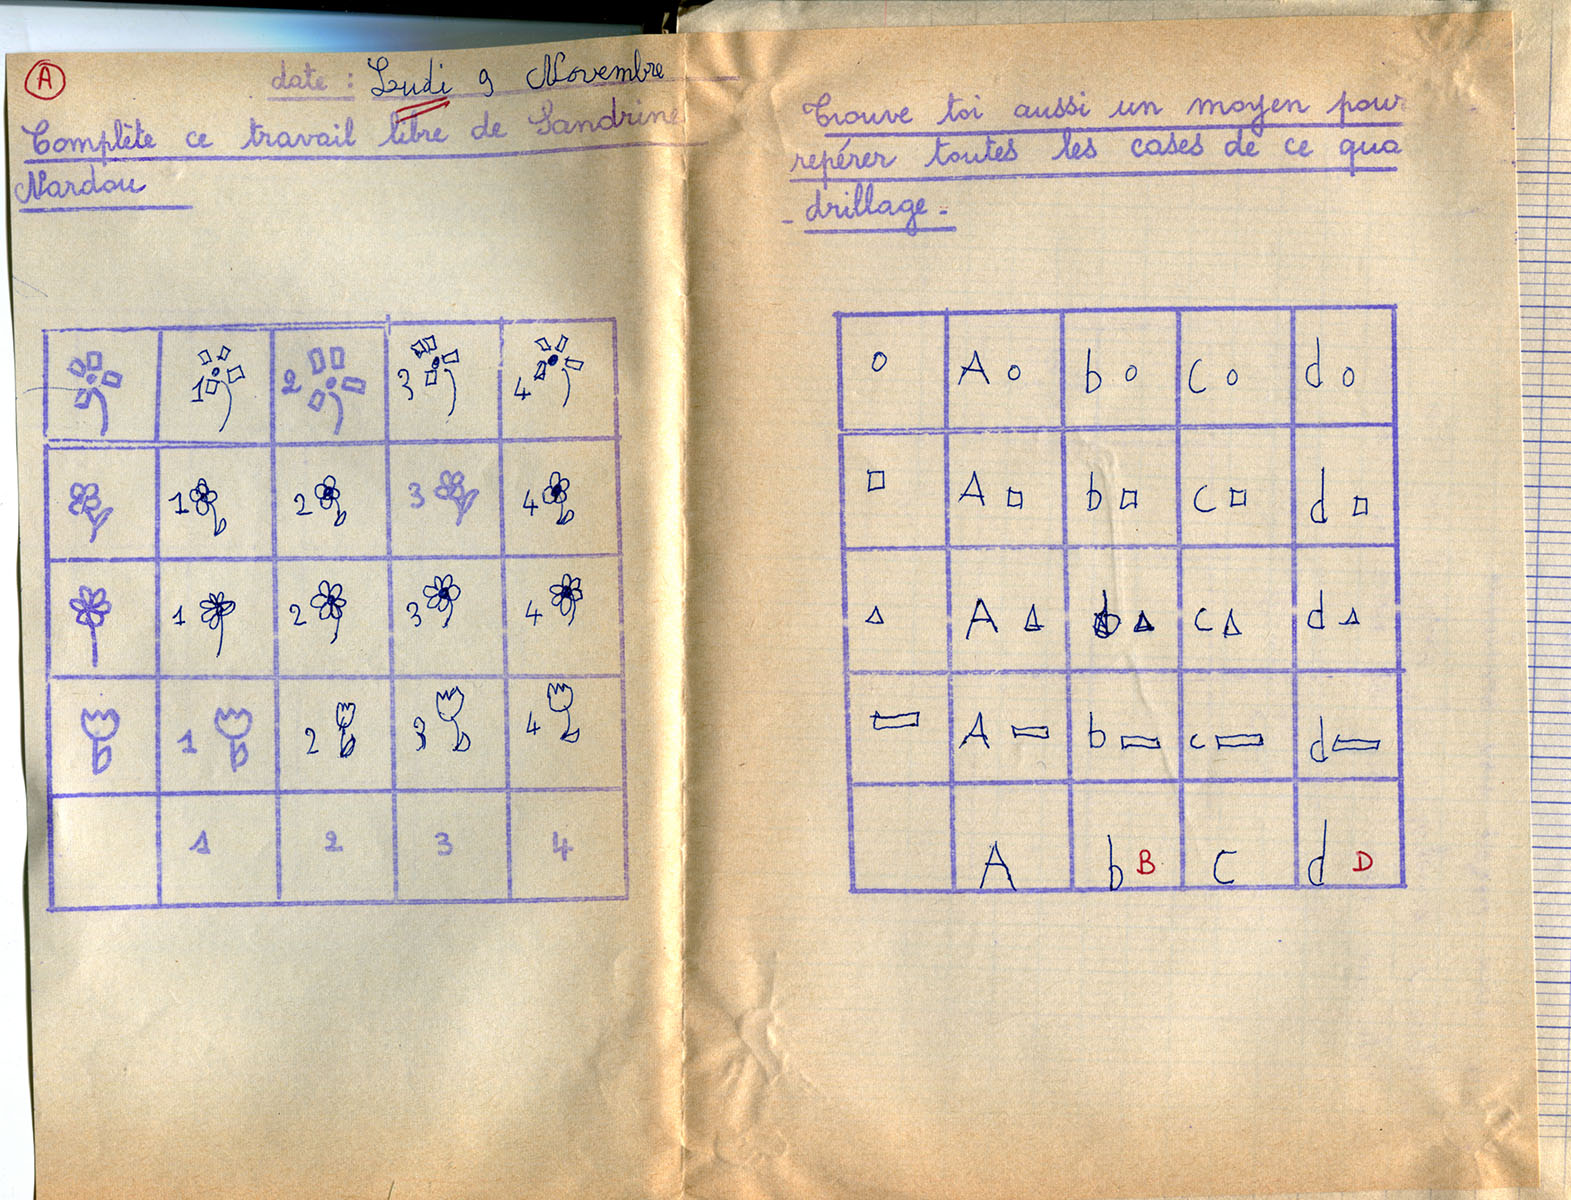 A
date : Ludi 9 Novembre
Complète ce travail libre de Sandrine
Nardou
1 2 3 4
1 2 3 4
1 2 3 4
1 2 3 4
1 2 3 4
Trouve toi aussi un moyen pour
repérer toutes les cases de ce qua
- drillage -
A b c d
A b c d
A b c d
A b c d
A b B c d D